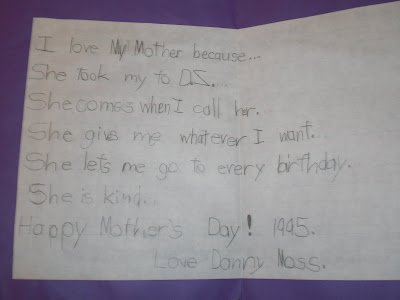 I love My Mother because...
She Took my to DZ.
She comes when I call her.
She givs me whatever I want.
She lets me go to every birthday.
She is kind.
Happy Mother's Day! 1995.
Love Danny Moss.